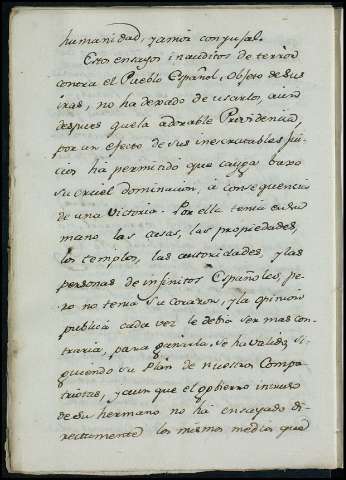 humanidad, y amor conyugal.
Estos ensayos inauditos de terror
contra el Pueblo Español, Objeto de sus
iras, no ha dexado de usarlos, aun
despues que la adorable Providencia,
por un efecto de sus inescrutables jui-
cios ha permitido que cayga baxo
su cruel dominacion, á consequencia
de una Victoria. Por ella tenia en su
mano las casas, las propiedades,
los templos, las autoridades, y las
personas de infinitos Españoles, pe-
ro no tenia su corazon, y la opinion
publica cada vez le debia ser mas con-
traria, para ganarla. Se ha valido, si-
guiendo su Plan de nuestros Compa-
triotas, y aun que el gobierno intruso
de su hermano no ha ensayado di-
rectamente los mismos medios que